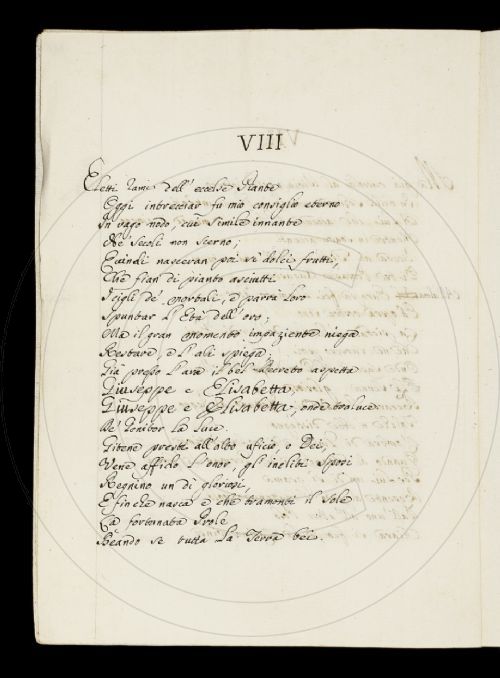 VIII
Eletti rami dell' eccelse Piante
Oggi intrecciar fu mio consiglio eterno
In vago nodo, cui simile innante
Ne' secoli non scerno;
Quindi nasceran poi sì dolci frutti,
Che fian di pianto asciutti
I cigli de' Mortali, e parrà loro
Spuntar l'Età dell'oro;
Ma il gran momento impaziente niega
Restare, e l'ali spiega;
Già presso l'ara il bel Decreto aspetta
Giuseppe e Elisabetta,
Giuseppe e Elisabetta, onde traluce
De' Genitor la luce.
Gitene presti all'alto uficio, o Dei,
Vene affido l'onor, gl'incliti Sposi
Regnino un dì gloriosi,
E finche nasca e che tramonti il Sole
La fortunata Prole
Beando se tutta la Terra bei.